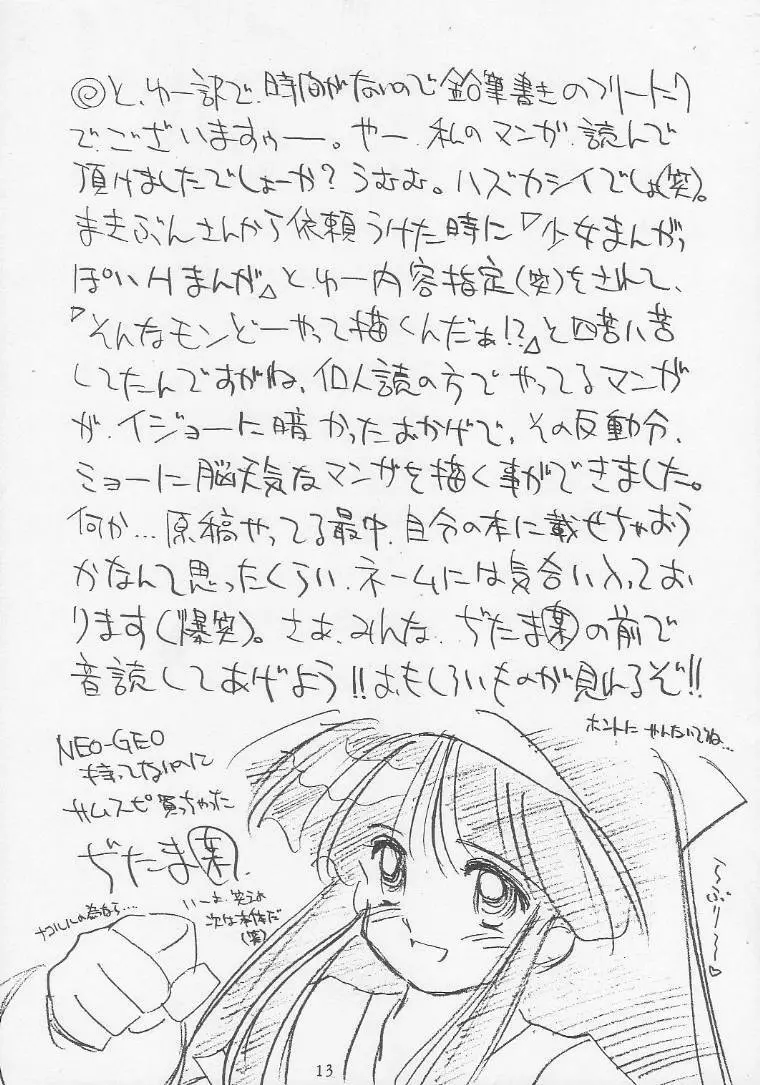 ◎と、ゆー訳で、時間がないので鉛筆書きのフリートーク
でございますぅー。やー、私のマンガ、読んで
頂けましたでしょーか？うむむ。ハズカシイでしょ(笑)。
まきぶんさんから依頼うけた時に『少女まんがっ
ぽいHまんが』と、ゆー内容指定(笑)をされて、
『そんなモンどーやって描くんだぁ!?』と四苦八苦
してたんですがね、個人誌の方でやってるマンガ
が、イジョーに暗かったおかげで、その反動分、
ミョーに脳天気なマンガを描く事ができました。
何か…原稿やってる最中、自分の本に載せちゃおう
かなんて思ったくらい、ネームには気合い入ってお
ります(爆笑)。さあ、みんな、ぢたま(某)の前で
音読してあげよう!!おもしろいものが見れるぞ!!
ホントに やんないでね…
NEO-GEO
持ってないのに
サムスピ買っちゃった
ぢたま(某)
いーよ、笑えよ
次は本体だ
(笑)
ナコルルの為なら…
〜ぷりー〜♡
13